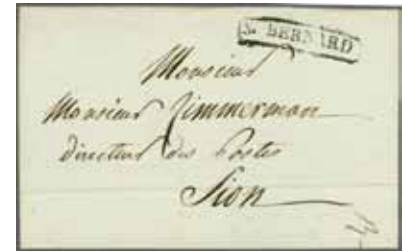 St. BERNARD
Monsieur
Monsieur Zimmerman
directeur des Postes
Sion